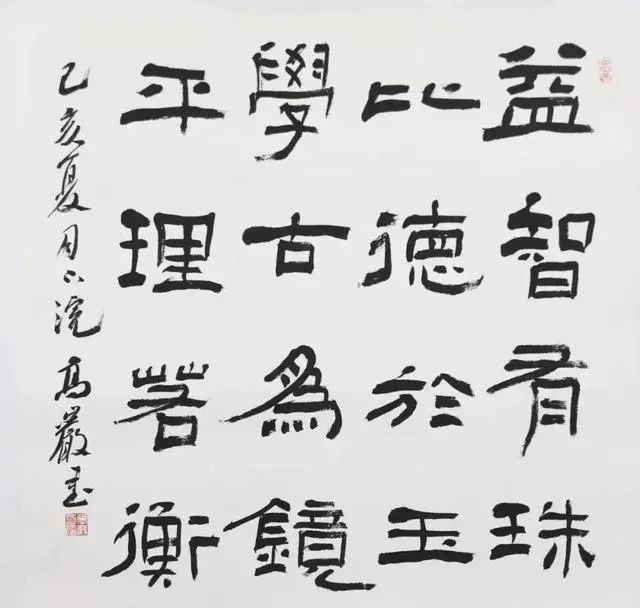 益智有珠
比德於玉
學古為鏡
平理若衡
己亥夏月心浣高嚴書